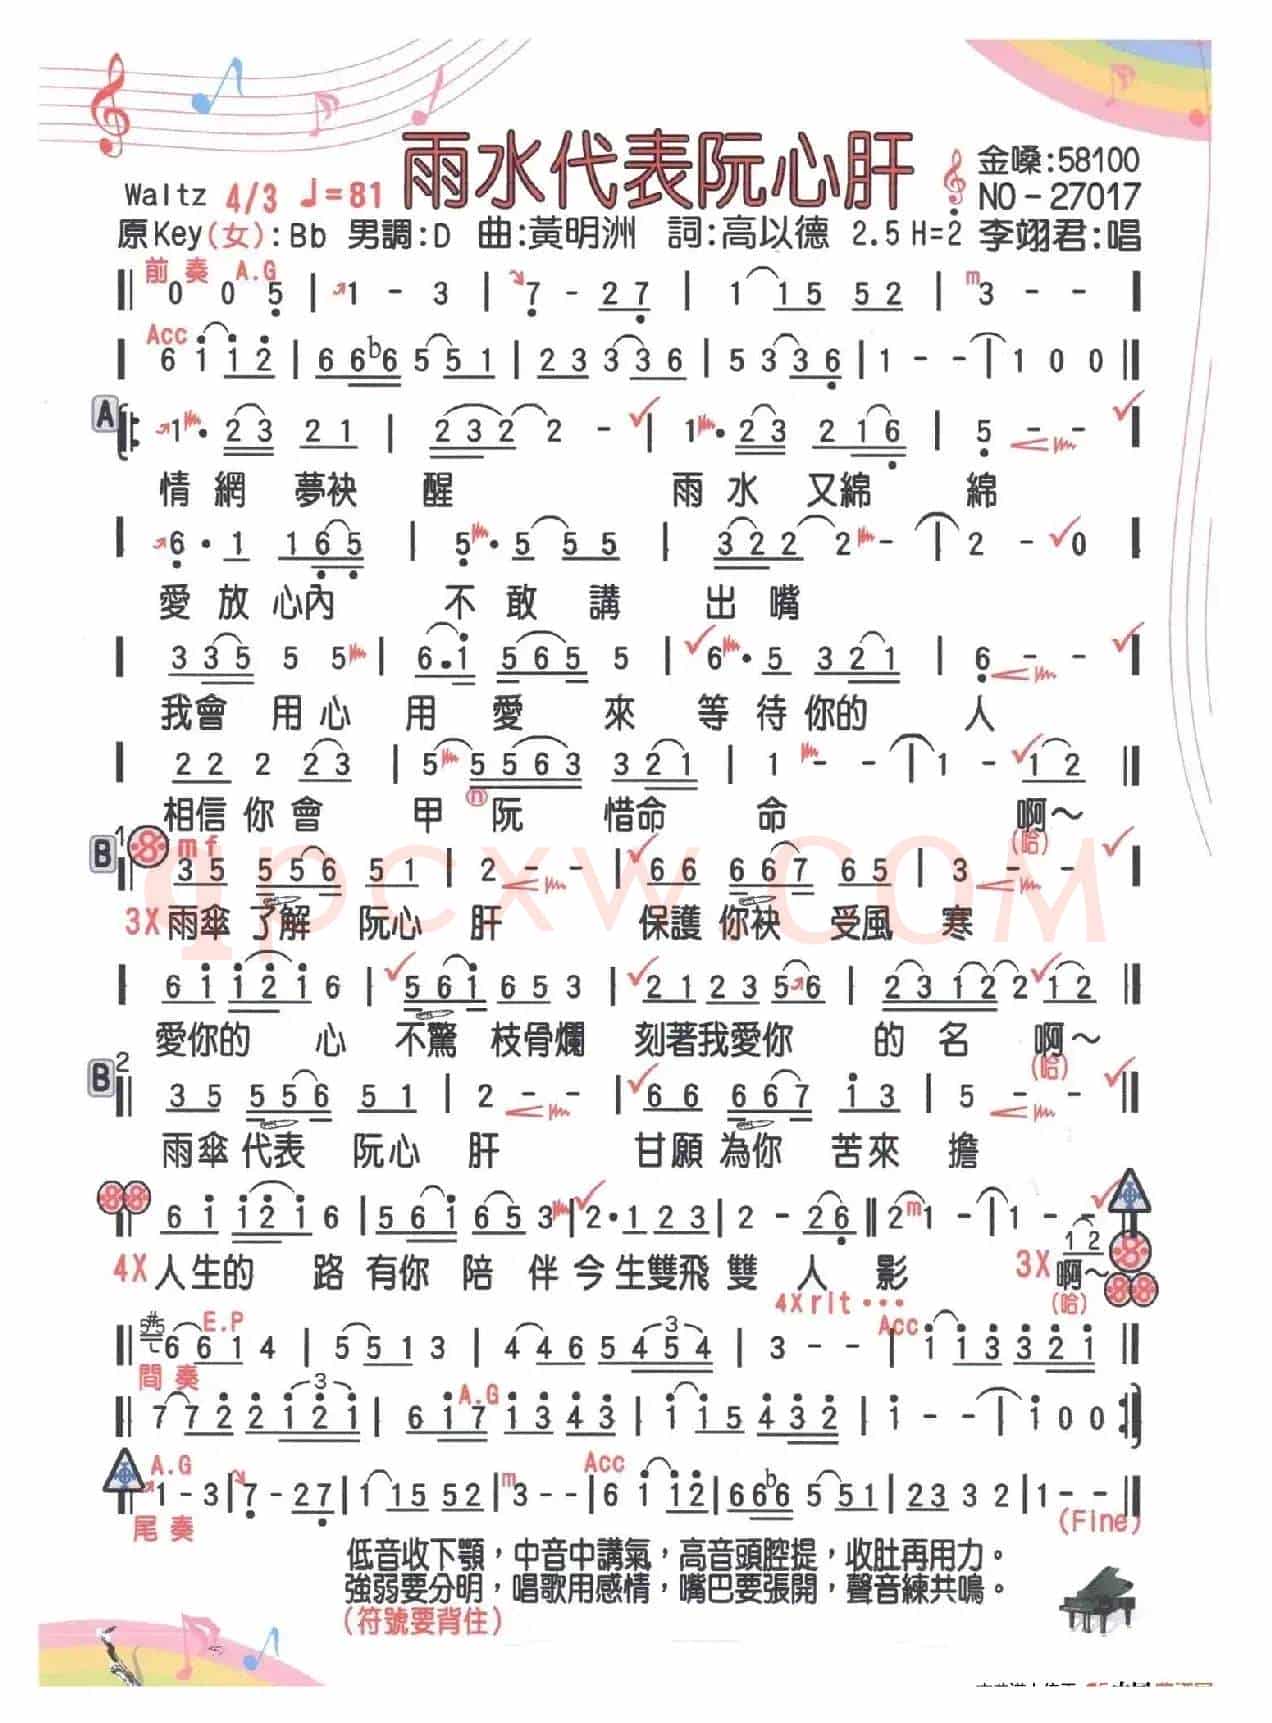 雨水代表阮心肝
金嗓:58100
Waltz 4/3 ♩=81
NO-27017
原Key(女):Bb 男調:D 曲:黃明洲 詞:高以德 2.5 H=2̇ 李翊君:唱
前奏 A.G
0 0 5 | 1 - 3 | 7 - 2 7 | 1 1 5 5 2 | m 3 - - |
Acc
6 1 1 2 | 6 6 b6 5 5 1 | 2 3 3 3 6 | 5 3 3 6 | 1 - - | 1 0 0 ||
A
1 · 2 3 2 1 | 2 3 2 2 - | 1 · 2 3 2 1 6 | 5 - - |
情網 夢袂 醒 雨水 又綿 綿
6 · 1 1 6 5 | 5 · 5 5 5 | 3 2 2 2 - | 2 - 0 |
愛放心內 不敢講 出嘴
3 3 5 5 5 | 6 · 1 5 6 5 5 | 6 · 5 3 2 1 | 6 - - |
我會 用心 用 愛 來 等待你的 人
2 2 2 2 3 | 5 5 5 6 3 3 2 1 | 1 - - | 1 - 1 2 ||
n
相信你會 甲 阮 惜命 命 啊～
(哈)
B 1 mf
3 5 5 5 6 5 1 | 2 - - | 6 6 6 6 7 6 5 | 3 - - |
3X 雨傘 了解 阮心 肝 保護 你袂 受風 寒
6 1 1 2 1 6 | 5 6 1 6 5 3 | 2 1 2 3 5 6 | 2 3 1 2 2 1 2 ||
愛你的 心 不驚 枝骨爛 刻著我愛你 的 名 啊～
(哈)
B 2
3 5 5 5 6 5 1 | 2 - - | 6 6 6 6 7 1 3 | 5 - - ||
雨傘 代表 阮心 肝 甘願 為你 苦來 擔
6 1 1 2 1 6 | 5 6 1 6 5 3 | 2 · 1 2 3 | 2 - 2 6 || 2 m 1 - | 1 - -
1 2
4X 人生的 路 有你 陪 伴 今生雙飛 雙 人 影 3X 啊～
4X rit ··· (哈)
E.P Acc
6 6 1 4 | 5 5 1 3 | 4 4 6 5 4 5 4 | 3 - - | 1 1 3 3 2 1 ||
3
間奏
3
A.G
7 7 2 2 1 2 1 | 6 1 7 1 3 4 3 | 1 1 5 4 3 2 | 1 - - | 1 0 0
A.G Acc
1 - 3 | 7 - 2 7 | 1 1 5 5 2 | m 3 - - | 6 1 1 2 | 6 6 b6 5 5 1 | 2 3 3 2 | 1 - - ||
尾奏 (Fine)
低音收下顎，中音中講氣，高音頭腔提，收肚再用力。
強弱要分明，唱歌用感情，嘴巴要張開，聲音練共鳴。
(符號要背住)
qpcxw.COM